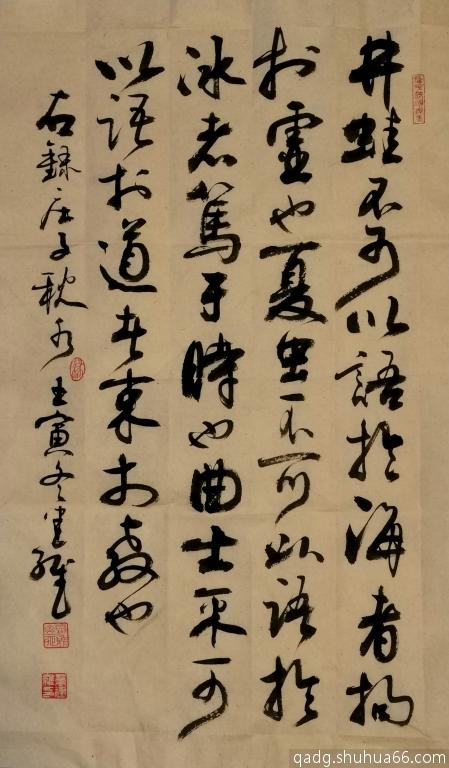 井蛙不可以語於海者拘
於虛也夏虫不可以語於
冰者篤于時也曲士不可
以語於道者束於教也
右錄庄子秋水 壬寅冬
qadg.shuhua66.com